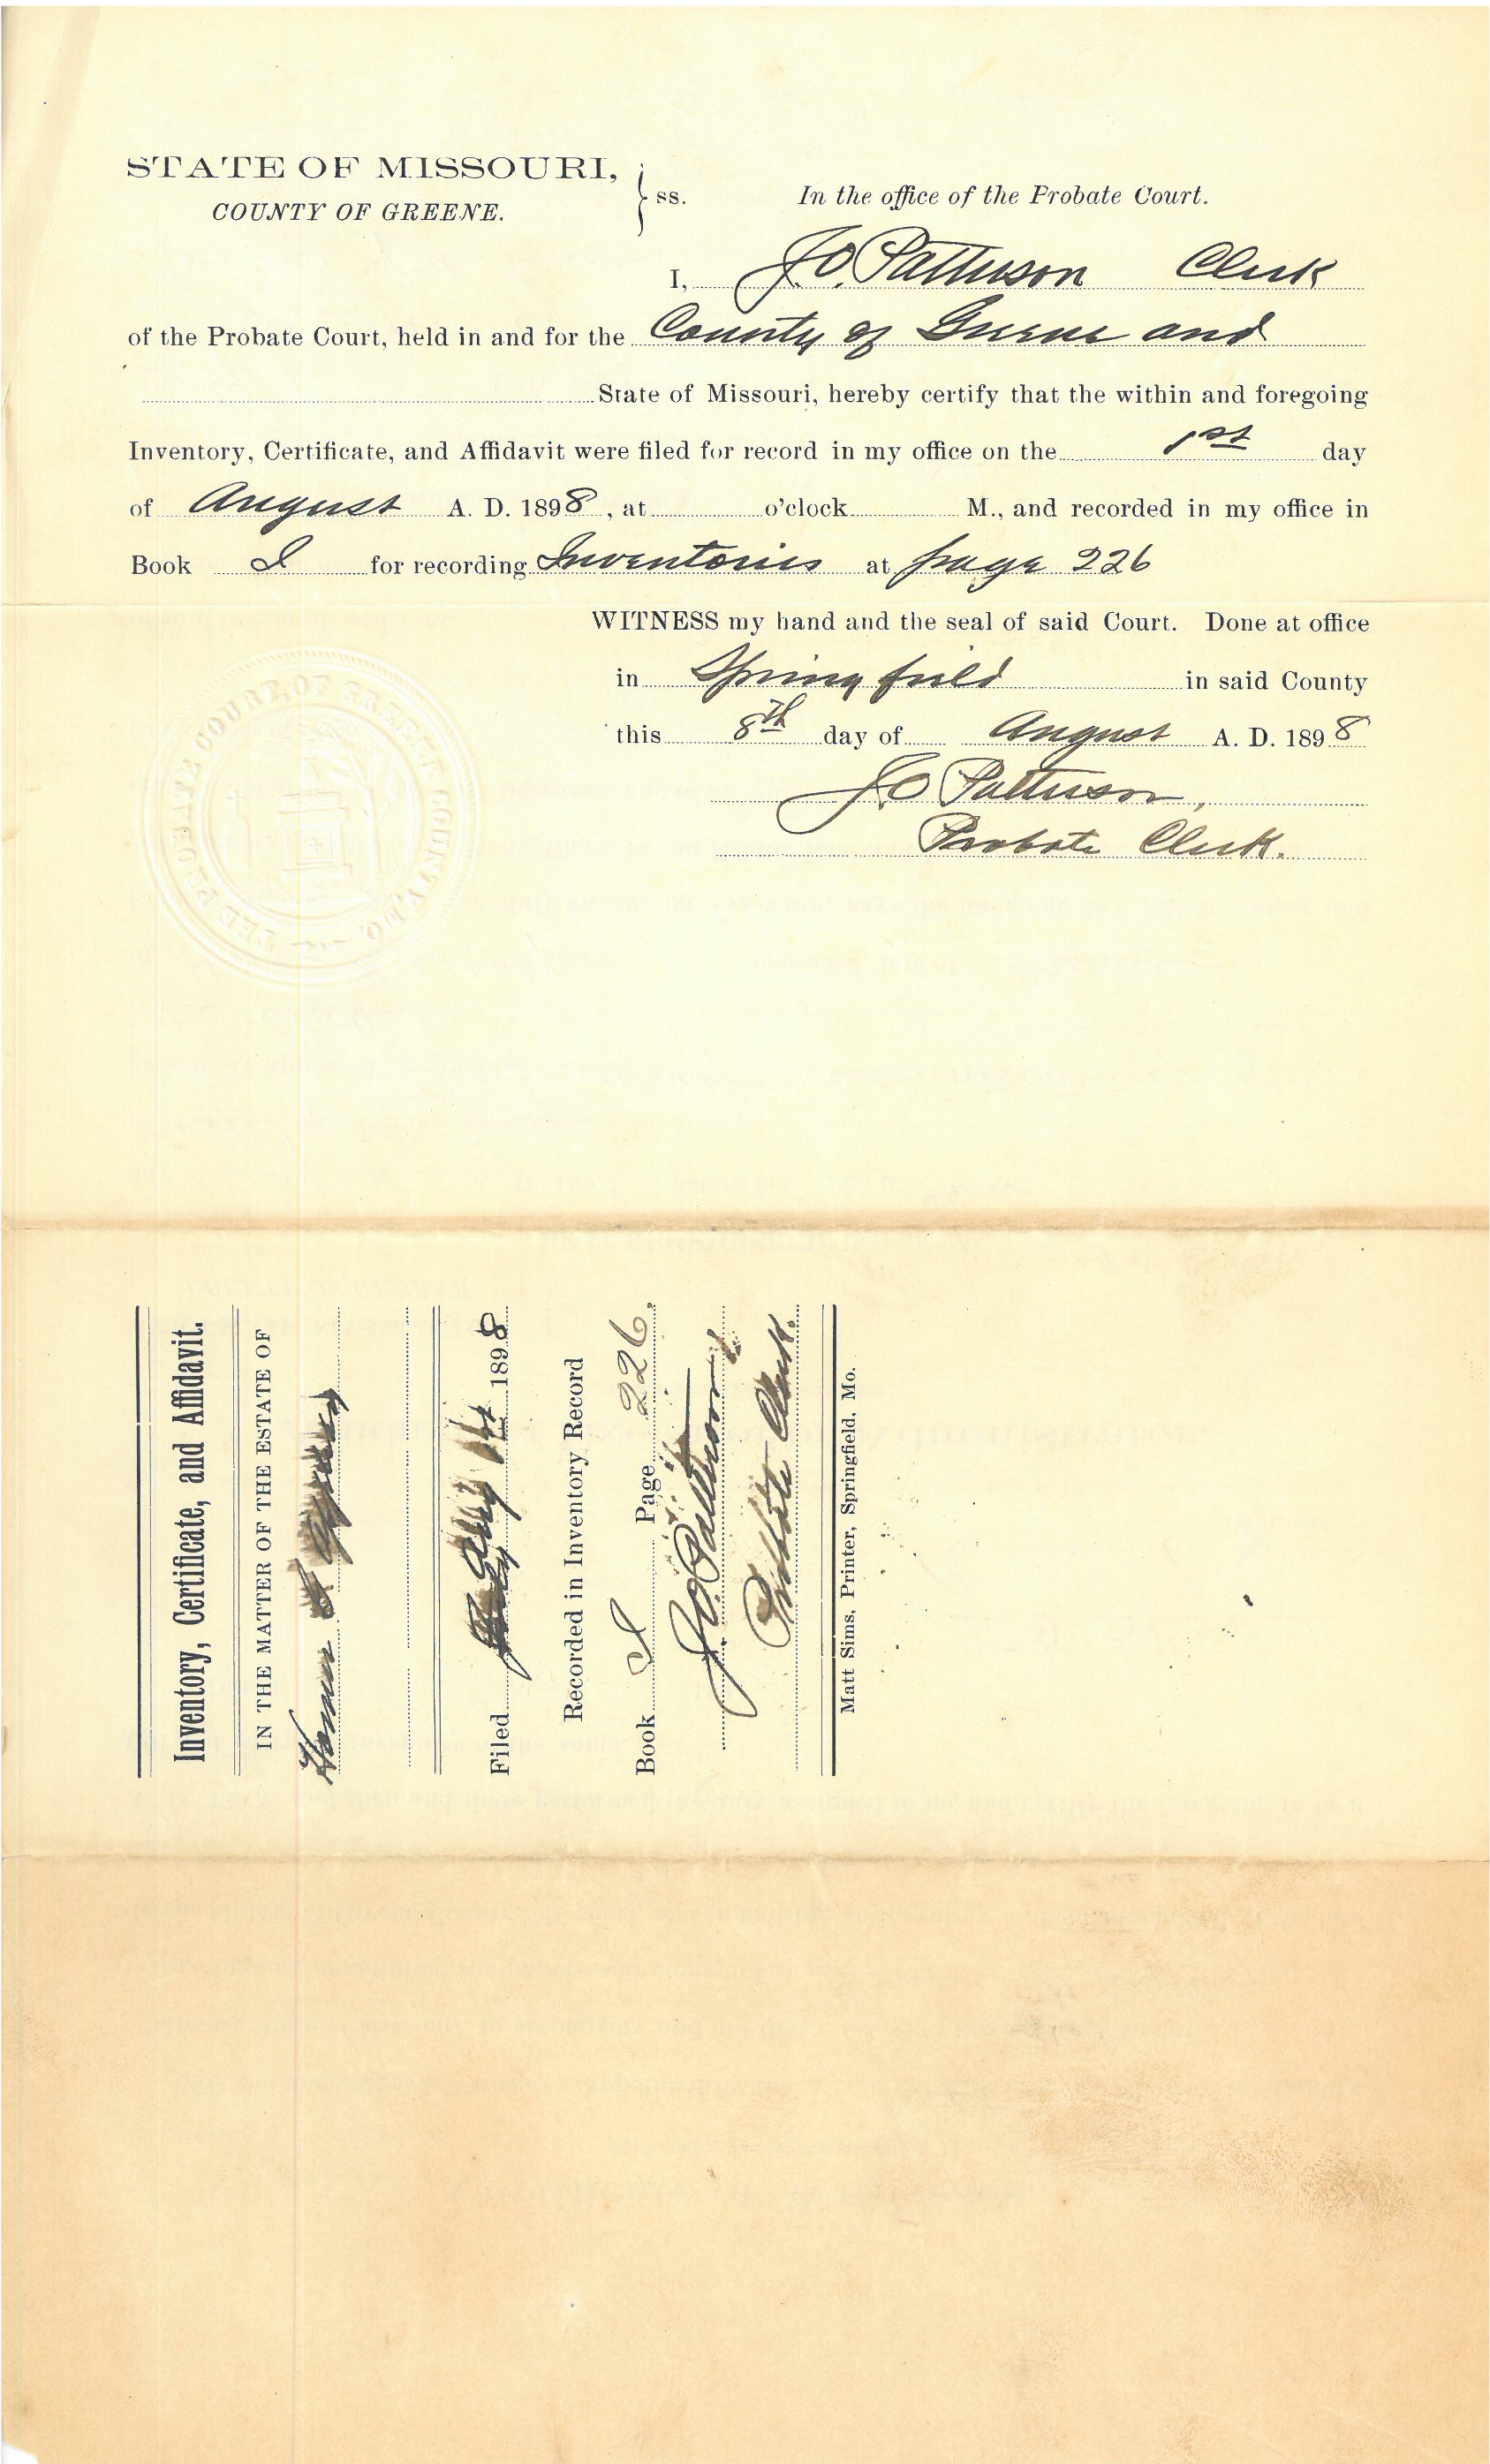 STATE OF MISSOURI,
COUNTY OF GREENE.
ss.
In the office of the Probate Court.
I, J.O. Patterson Clerk
of the Probate Court, held in and for the County of Greene and
State of Missouri, hereby certify that the within and foregoing
Inventory, Certificate, and Affidavit were filed for record in my office on the 1st day
of August A. D. 1898, at o'clock M., and recorded in my office in
Book I for recording Inventories at page 226
WITNESS my hand and the seal of said Court. Done at office
in Springfield in said County
this 8th day of August A. D. 1898
J.O. Patterson,
Probate Clerk.
THE PROBATE COURT OF GREENE COUNTY, MO.
Inventory, Certificate, and Affidavit.
IN THE MATTER OF THE ESTATE OF
Homer
Filed Aug 1st 1898
Recorded in Inventory Record
Book I Page 226.
J.O. Patterson
Probate Clerk.
Matt Sims, Printer, Springfield, Mo.